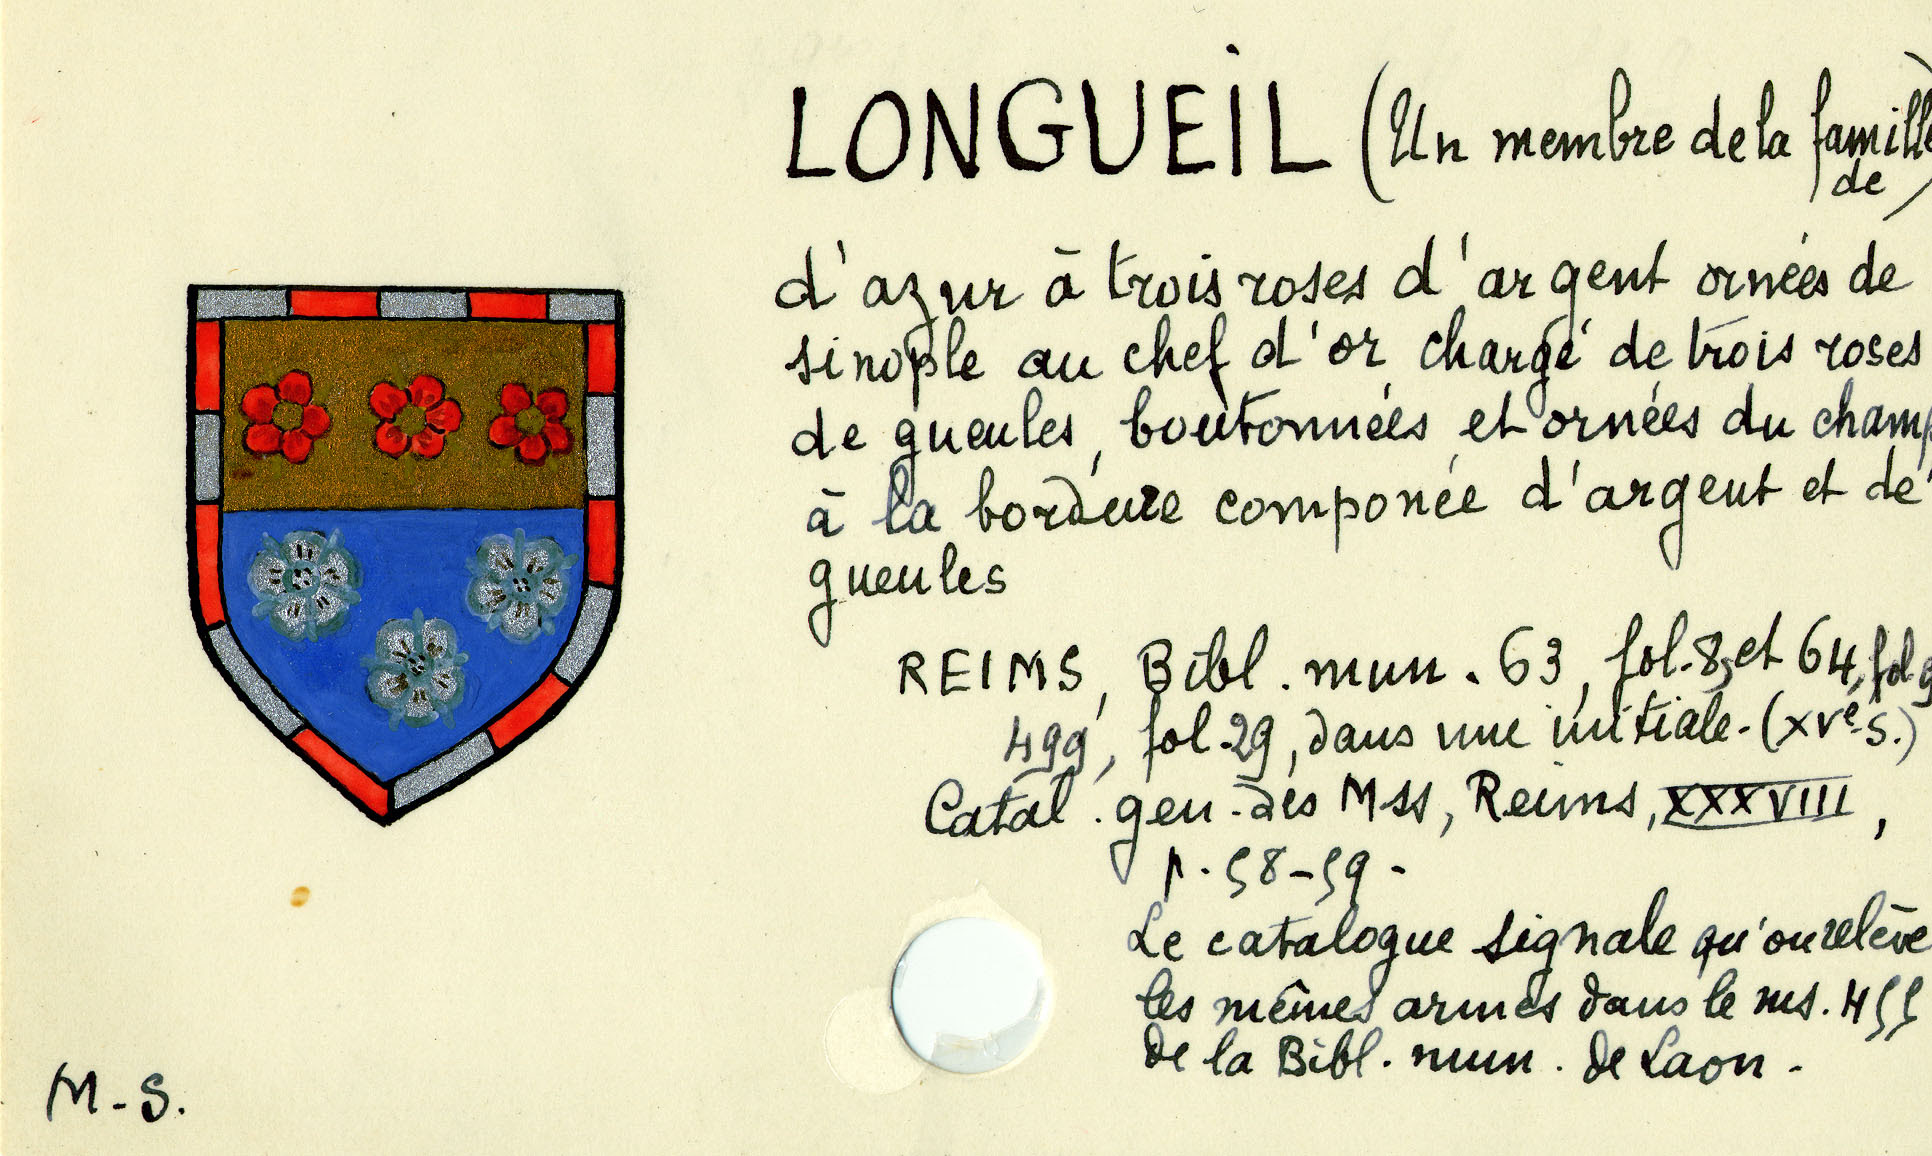 LONGUEIL (Un membre de la famille
de)
d'azur à trois roses d'argent ornées de
sinople au chef d'or chargé de trois roses
de gueules, boutonnées et ornées du champ
à la bordure componée d'argent et de
gueules
REIMS, Bibl. mun. 63, fol. 8, et 64, fol. 9
499, fol. 29, dans une initiale. (XVe S.)
Catal. gen. des Mss, Reims, XXXVIII,
p. 58-59.
Le catalogue signale qu'on relève
les mêmes armes dans le ms. 455
de la Bibl. mun. de Laon.
M-S.